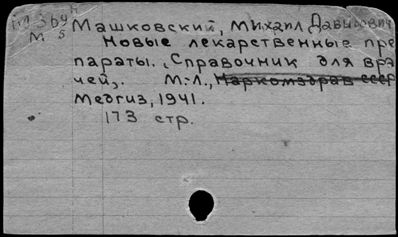 М 369 Машковский, Михаил Давыдович
М 5 Новые лекарственные пре
параты. Справочник для вра
чей,. М.-Л., Наркомздрав СССР
Медгиз, 1941.
173 стр.